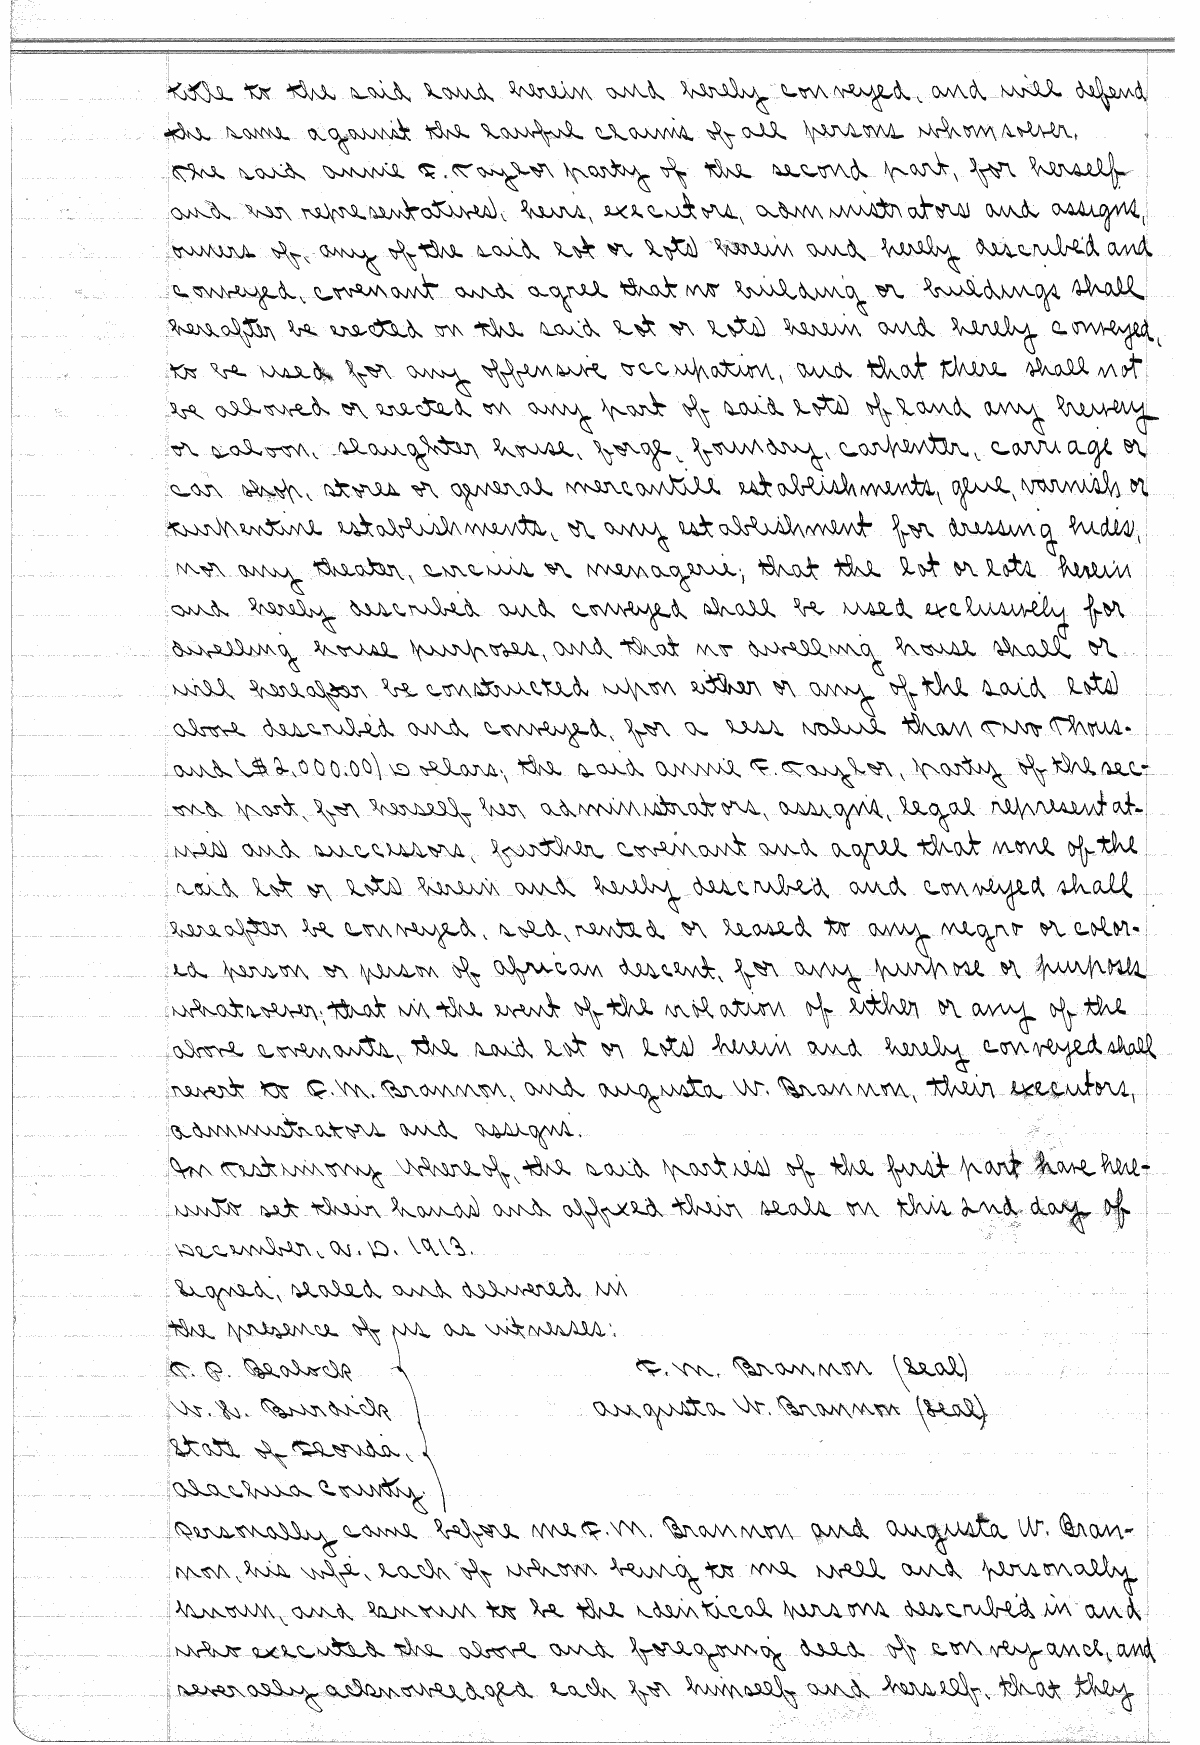 title to the said land herein and hereby conveyed, and will defend
the same against the lawful claims of all persons whomsoever.
The said Annie F. Taylor party of the second part, for herself
and her representatives, heirs, executors, administrators and assigns,
owners of, any of the said lot or lots herein and hereby described and
conveyed, covenant and agree that no building or buildings shall
hereafter be erected on the said lot or lots herein and hereby conveyed,
to be used for any offensive occupation, and that there shall not
be allowed or erected on any part of said lots of land any brewery
or saloon, slaughter house, forge, foundry, carpenter, carriage or
car shop, stores or general mercantile establishments, glue, varnish or
turpentine establishments, or any establishment for dressing hides,
nor any theater, circus or menagerie; that the lot or lots herein
and hereby described and conveyed shall be used exclusively for
dwelling house purposes, and that no dwelling house shall or
will hereafter be constructed upon either or any of the said lots
above described and conveyed, for a less value than Two Thous-
and ($2,000.00) Dollars; the said Annie F. Taylor, party of the sec-
ond part, for herself her administrators, assigns, legal representat-
ives and successors, further covenant and agree that none of the
said lot or lots herein and hereby described and conveyed shall
hereafter be conveyed, sold, rented or leased to any negro or color-
ed person or person of African descent, for any purpose or purposes
whatsoever; that in the event of the violation of either or any of the
above covenants, the said lot or lots herein and hereby conveyed shall
revert to F. M. Brannon, and Augusta W. Brannon, their executors,
administrators and assigns.
In Testimony Whereof, the said parties of the first part have here-
unto set their hands and affixed their seals on this 2nd day of
December, A. D. 1913.
Signed, sealed and delivered in
the presence of us as witnesses:
T. P. Bealock F. M. Brannon (Seal)
W. S. Burdick Augusta W. Brannon (Seal)
State of Florida,
Alachua County.
Personally came before me F. M. Brannon and Augusta W. Bran-
non, his wife, each of whom being to me well and personally
known, and known to be the identical persons described in and
who executed the above and foregoing deed of conveyance, and
severally acknowledged each for himself and herself, that they